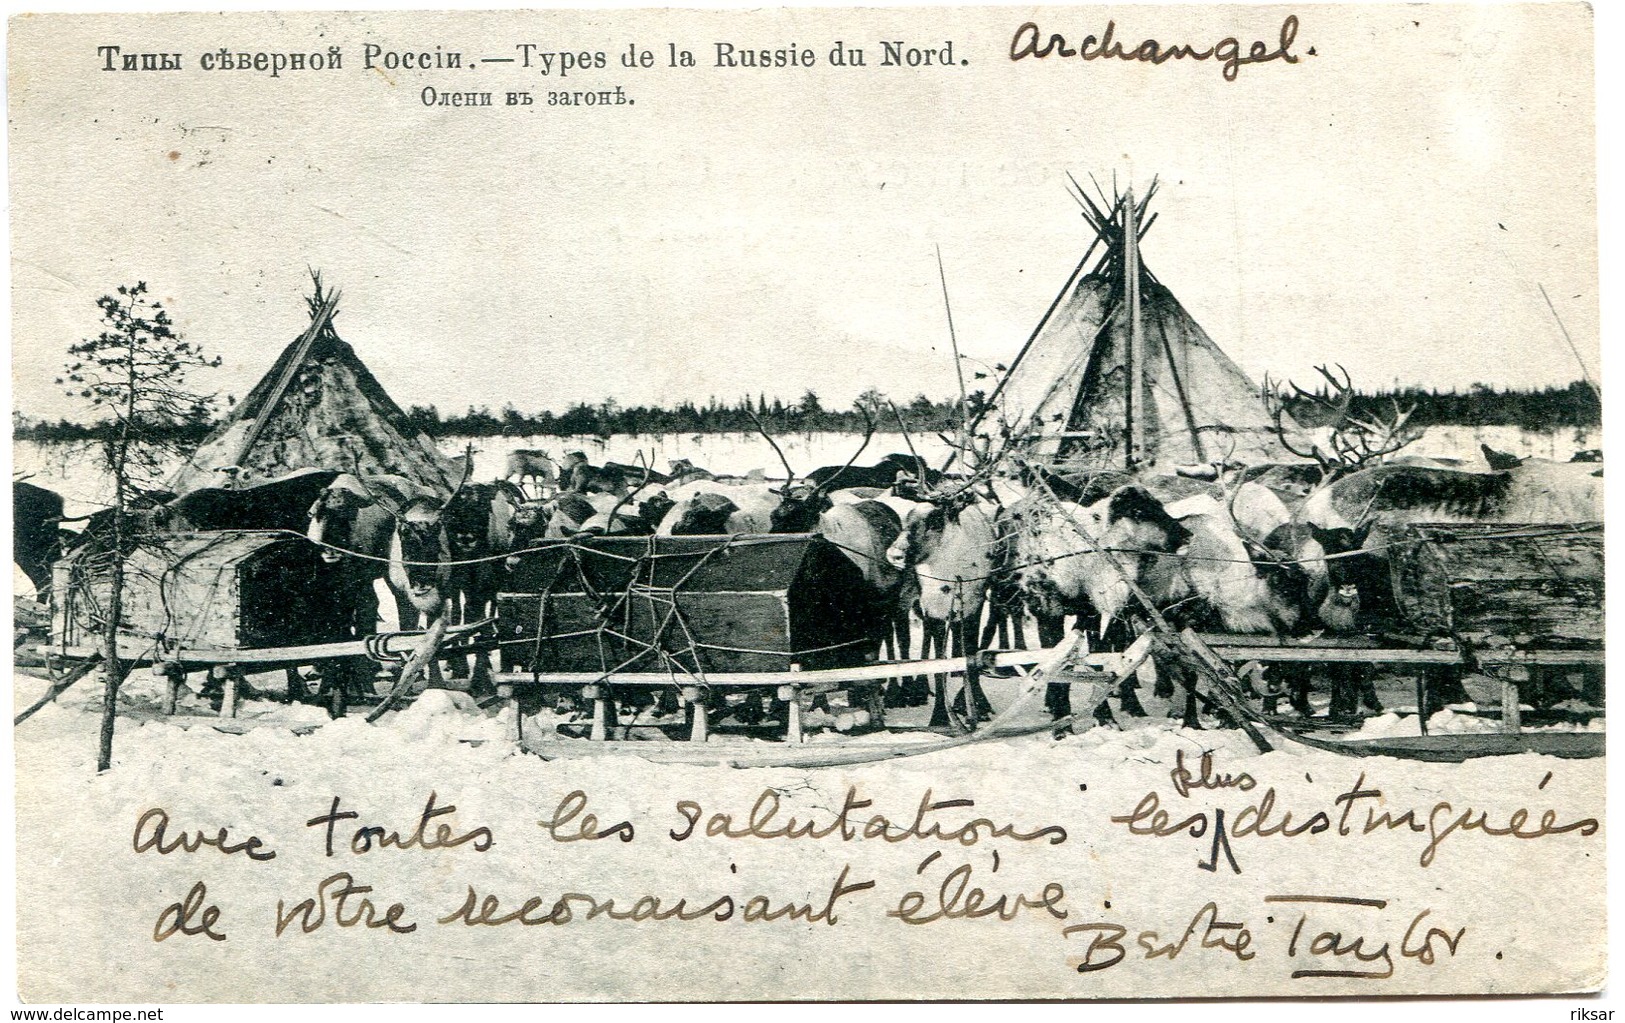 Типы сѣверной Россіи.—Types de la Russie du Nord. Archangel.
Олени въ загонѣ.
plus
Avec toutes les salutations les distinguées
de votre reconaisant élève.
Bertie Taylor.
www.delcampe.net
riksar